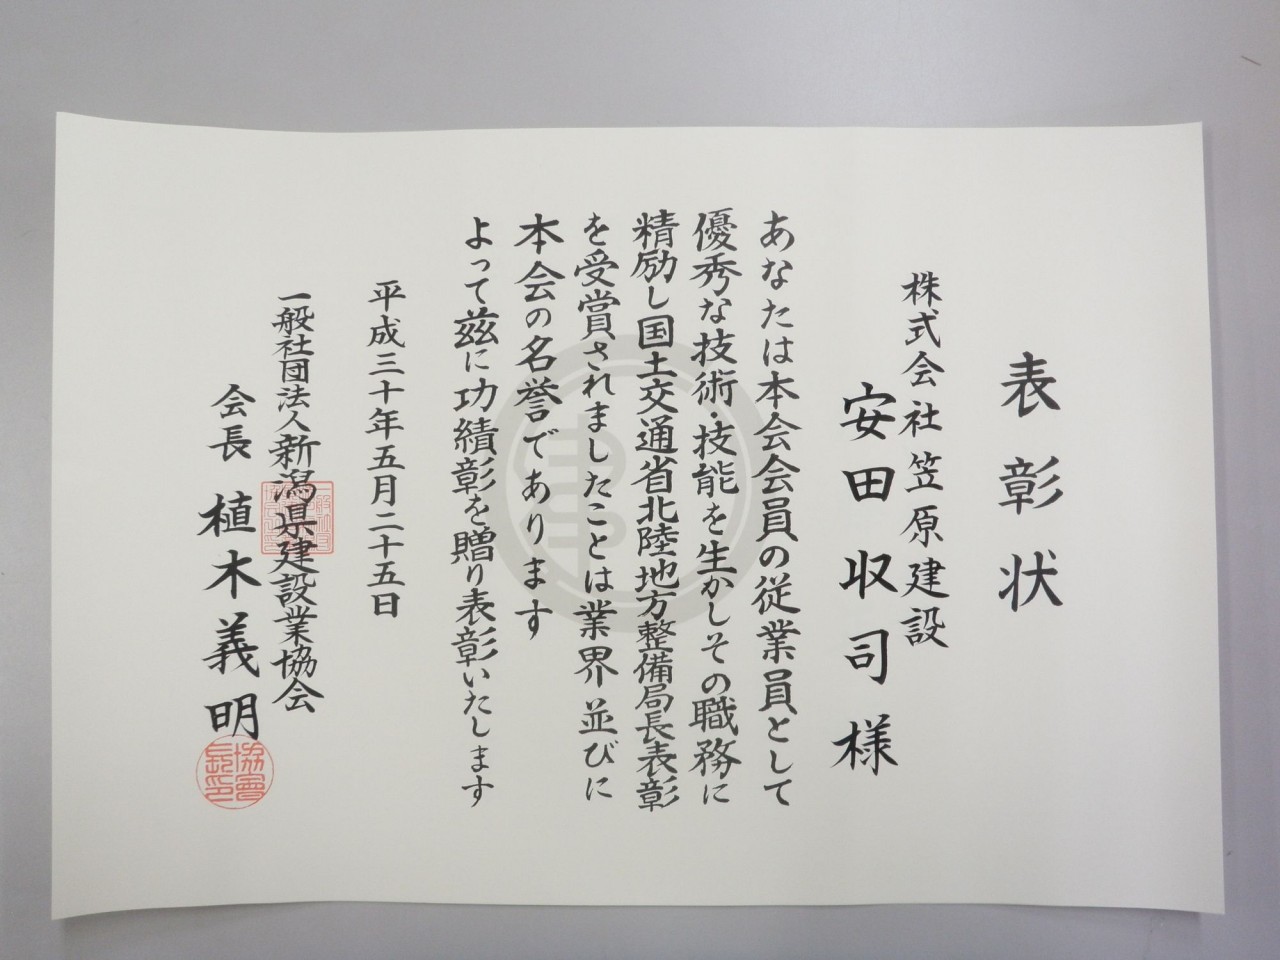 表彰状
株式会社笠原建設
安田収司様
あなたは本会会員の従業員として
優秀な技術・技能を生かしその職務に
精励し国土交通省北陸地方整備局長表彰
を受賞されましたことは業界並びに
本会の名誉であります
よって茲に功績彰を贈り表彰いたします
平成三十年五月二十五日
一般社団法人新潟県建設業協会
会長 植木義明
協會長印